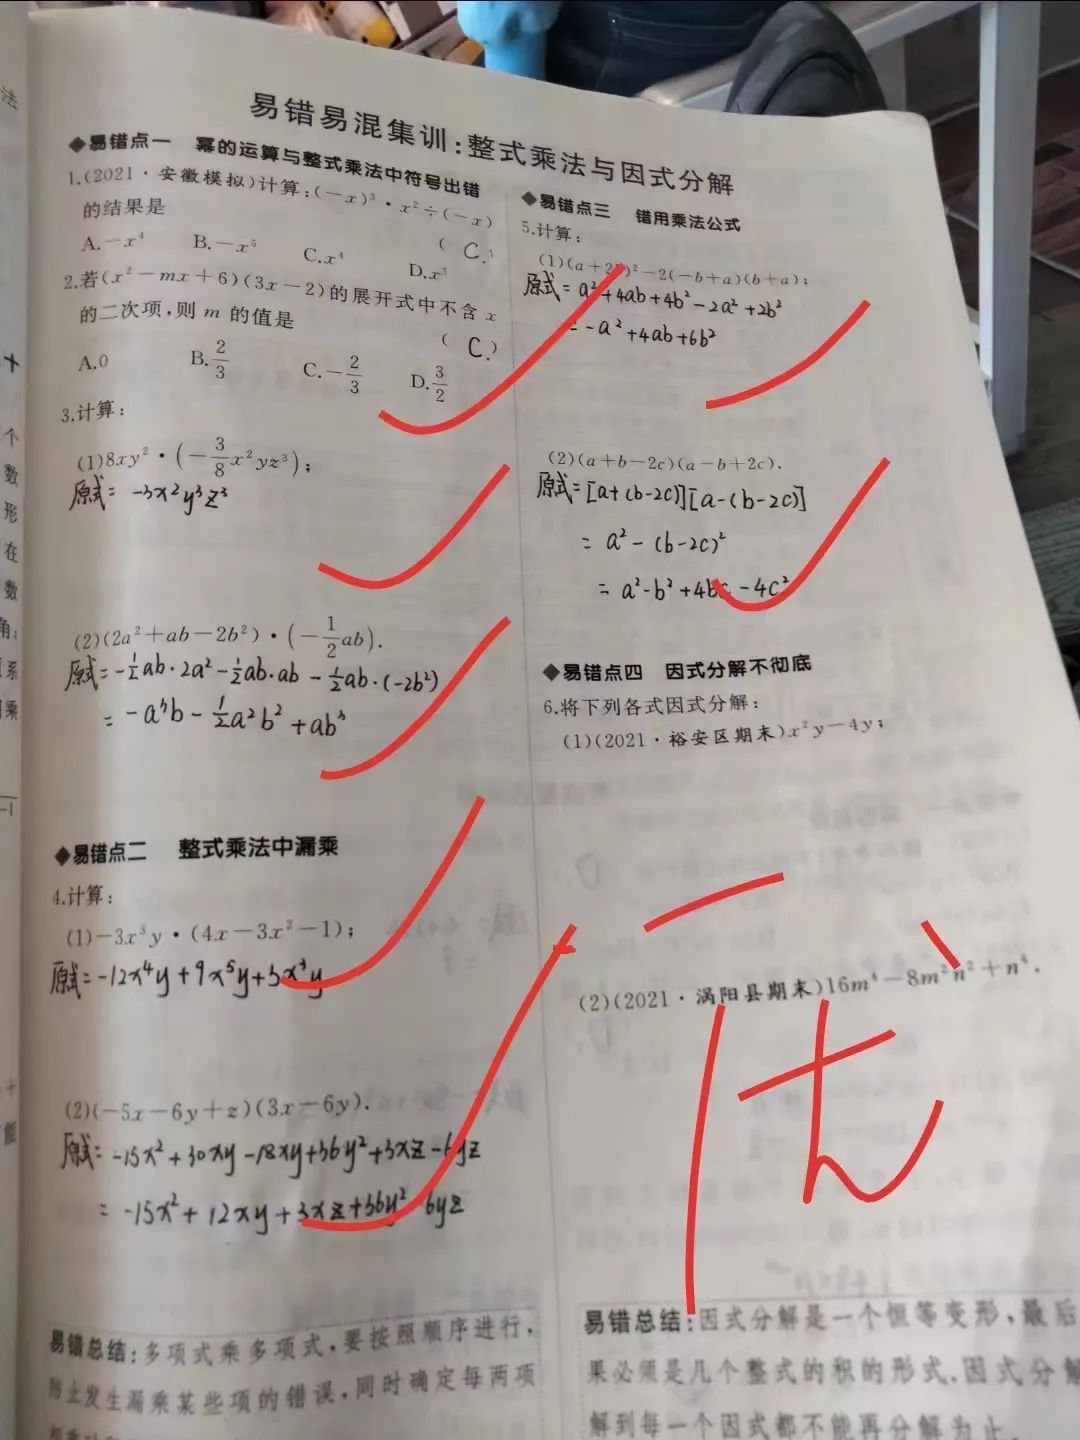 易错易混集训:整式乘法与因式分解
◆易错点一 幂的运算与整式乘法中符号出错
1.(2021·安徽模拟)计算:(-x)³·x²÷(-x)
的结果是 ( C. )
A.-x⁴ B.-x⁵ C.x⁴ D.x⁵
2.若(x²-mx+6)(3x-2)的展开式中不含x
的二次项,则 m 的值是 ( C. )
A.0 B.2/3 C.-2/3 D.3/2
3.计算:
(1)8xy²·(-3/8x²yz³);
原式=-3x²y³z³
(2)(2a²+ab-2b²)·(-1/2ab).
原式=-½ab·2a²-½ab·ab-½ab·(-2b²)
=-a³b-½a²b²+ab³
◆易错点二 整式乘法中漏乘
4.计算:
(1)-3x³y·(4x-3x²-1);
原式=-12x⁴y+9x⁵y+3x³y
(2)(-5x-6y+z)(3x-6y).
原式=-15x²+30xy-18xy+36y²+3xz-6yz
=-15x²+12xy+3xz+36y²-6yz
易错总结:多项式乘多项式,要按照顺序进行,
防止发生漏乘某些项的错误,同时确定每两项
◆易错点三 错用乘法公式
5.计算:
(1)(a+2b)²-2(-b+a)(b+a);
原式=a²+4ab+4b²-2a²+2b²
=-a²+4ab+6b²
(2)(a+b-2c)(a-b+2c).
原式=[a+(b-2c)][a-(b-2c)]
=a²-(b-2c)²
=a²-b²+4bc-4c²
◆易错点四 因式分解不彻底
6.将下列各式因式分解:
(1)(2021·裕安区期末)x²y-4y;
(2)(2021·涡阳县期末)16m⁴-8m²n²+n⁴.
优
易错总结:因式分解是一个恒等变形,最后
果必须是几个整式的积的形式.因式分解
解到每一个因式都不能再分解为止.